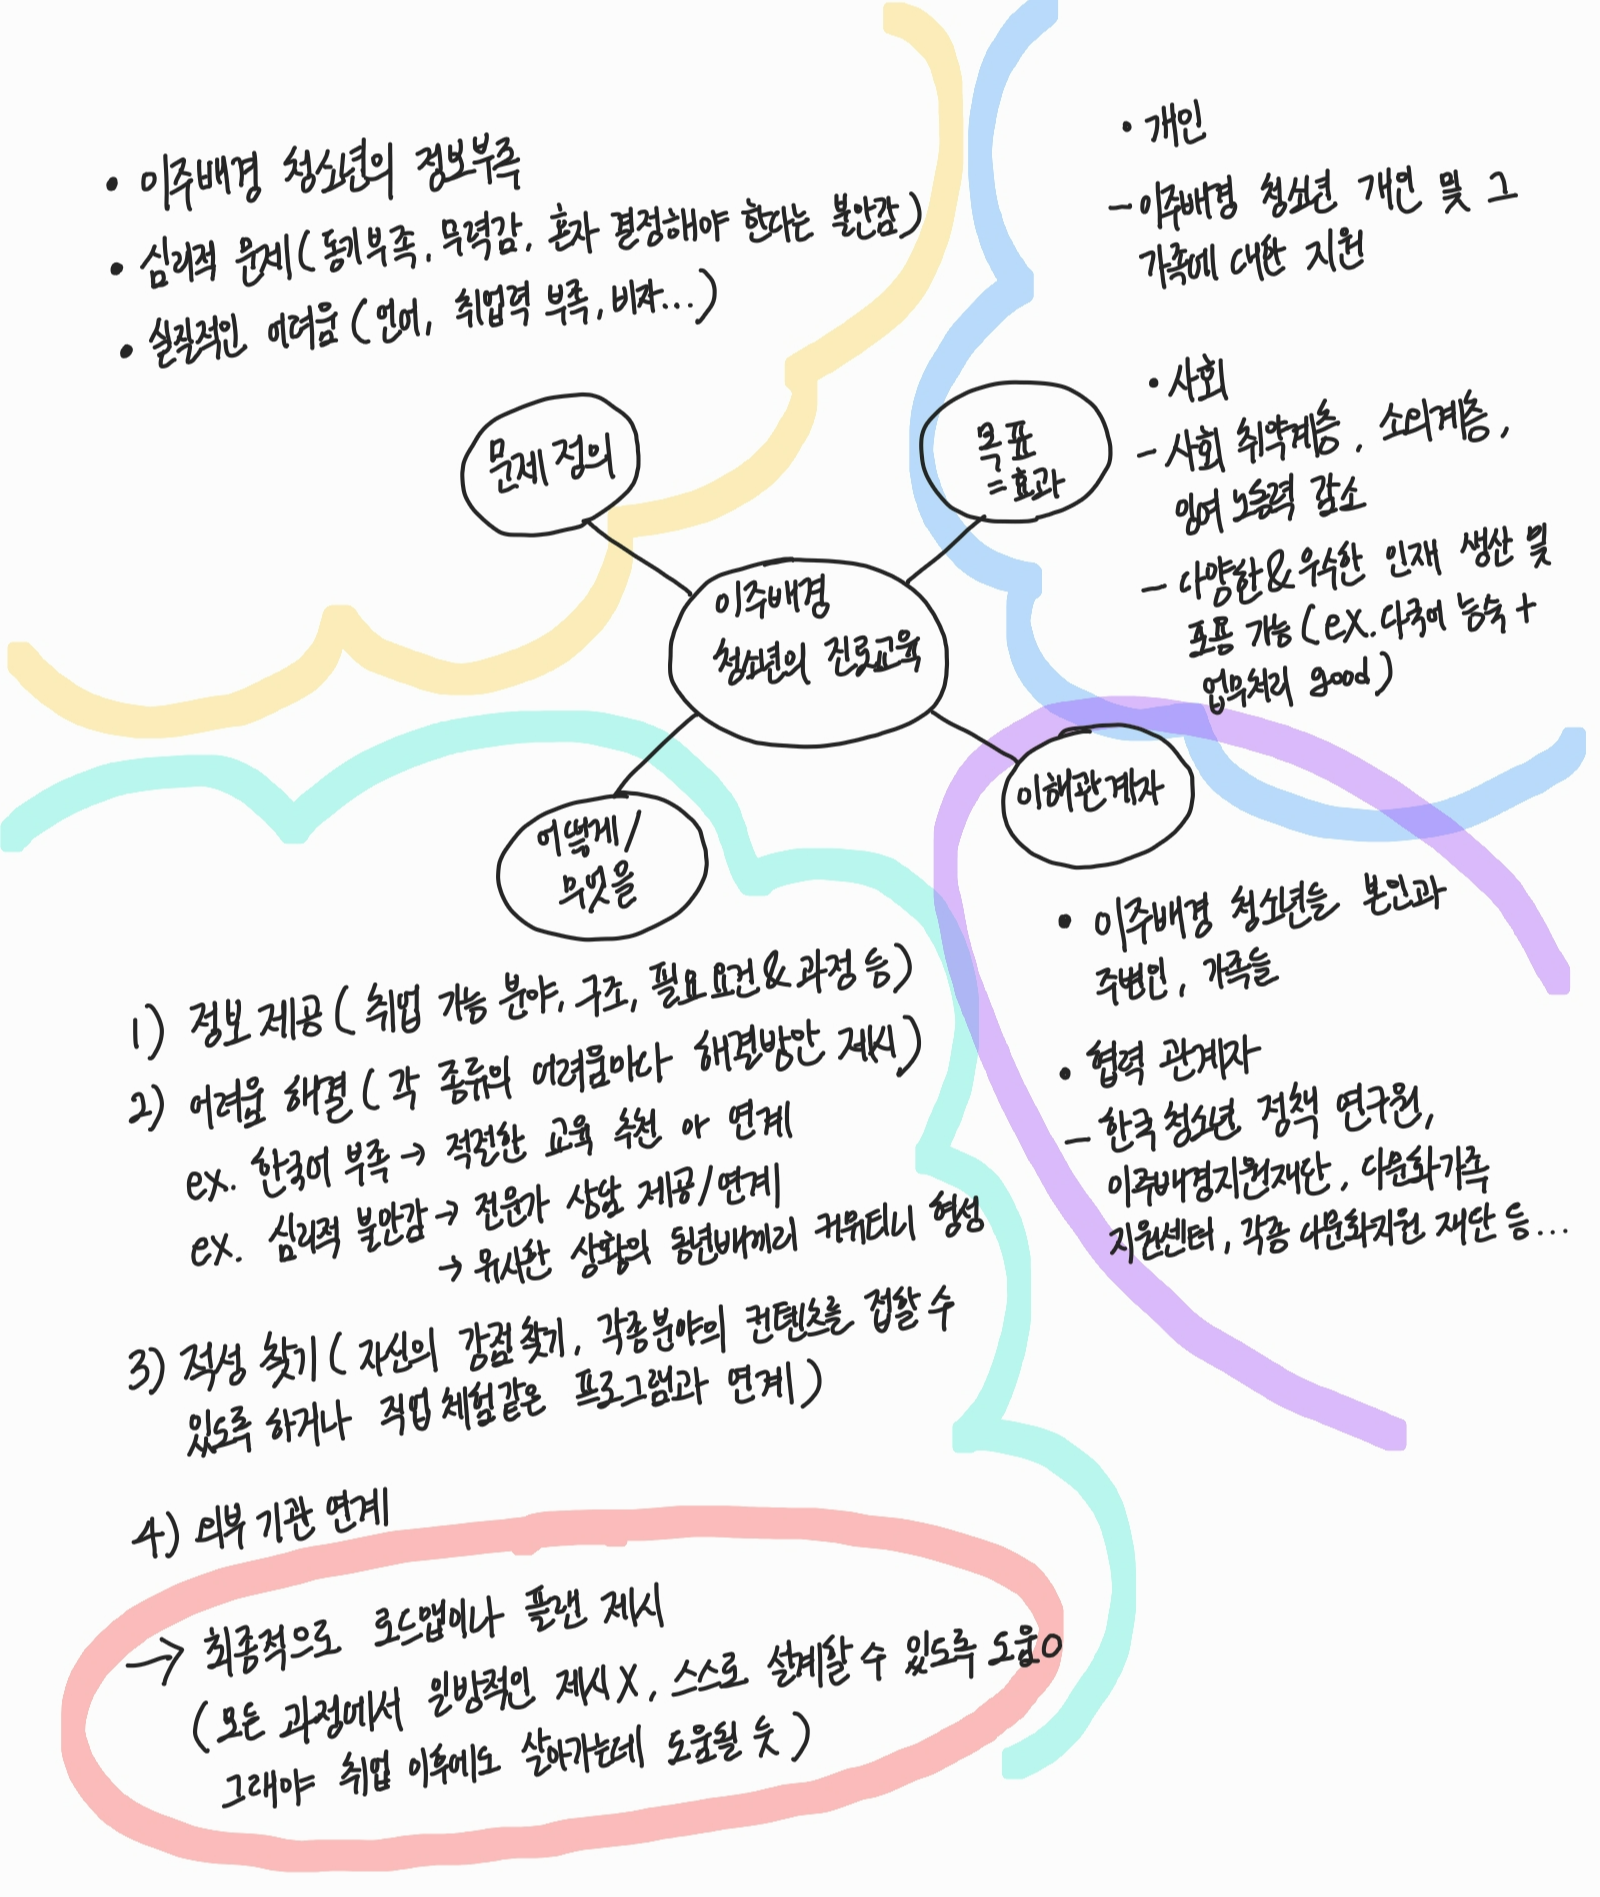 • 이주배경 청소년의 정보부족
• 심리적 문제(동기부족, 무력감, 혼자 결정해야 한다는 불안감)
• 실질적인 어려움(언어, 취업력 부족, 비자...)
문제 정의
• 개인
- 이주배경 청소년 개인 및 그
가족에 대한 지원
• 사회
- 사회 취약계층, 소외계층,
잉여 노동력 감소
- 다양한&우수한 인재 생산 및
포용 가능(ex. 다국어 능숙+
업무처리 good)
목표
=효과
이주배경
청소년의 진로교육
어떻게/
무엇을
이해관계자
1) 정보 제공(취업 가능 분야, 구조, 필요요건&과정 등)
2) 어려움 해결(각 종류의 어려움마다 해결방안 제시)
ex. 한국어 부족→ 적절한 교육 추천 or 연계
ex. 심리적 불안감→ 전문가 상담 제공/연계
→ 유사한 상황의 동년배끼리 커뮤티니 형성
3) 적성 찾기(자신의 강점찾기, 각종분야의 컨텐츠를 접할 수
있도록 하거나 직업체험같은 프로그램과 연계)
4) 외부 기관 연계
→ 최종적으로 로드맵이나 플랜 제시
(모든 과정에서 일방적인 제시X, 스스로 설계할 수 있도록 도움O
그래야 취업 이후에도 살아가는데 도움될 듯)
• 이주배경 청소년들 본인과
주변인, 가족들
• 협력 관계자
- 한국청소년 정책 연구원,
이주배경지원재단, 다문화가족
지원센터, 각종 다문화지원 재단 등...